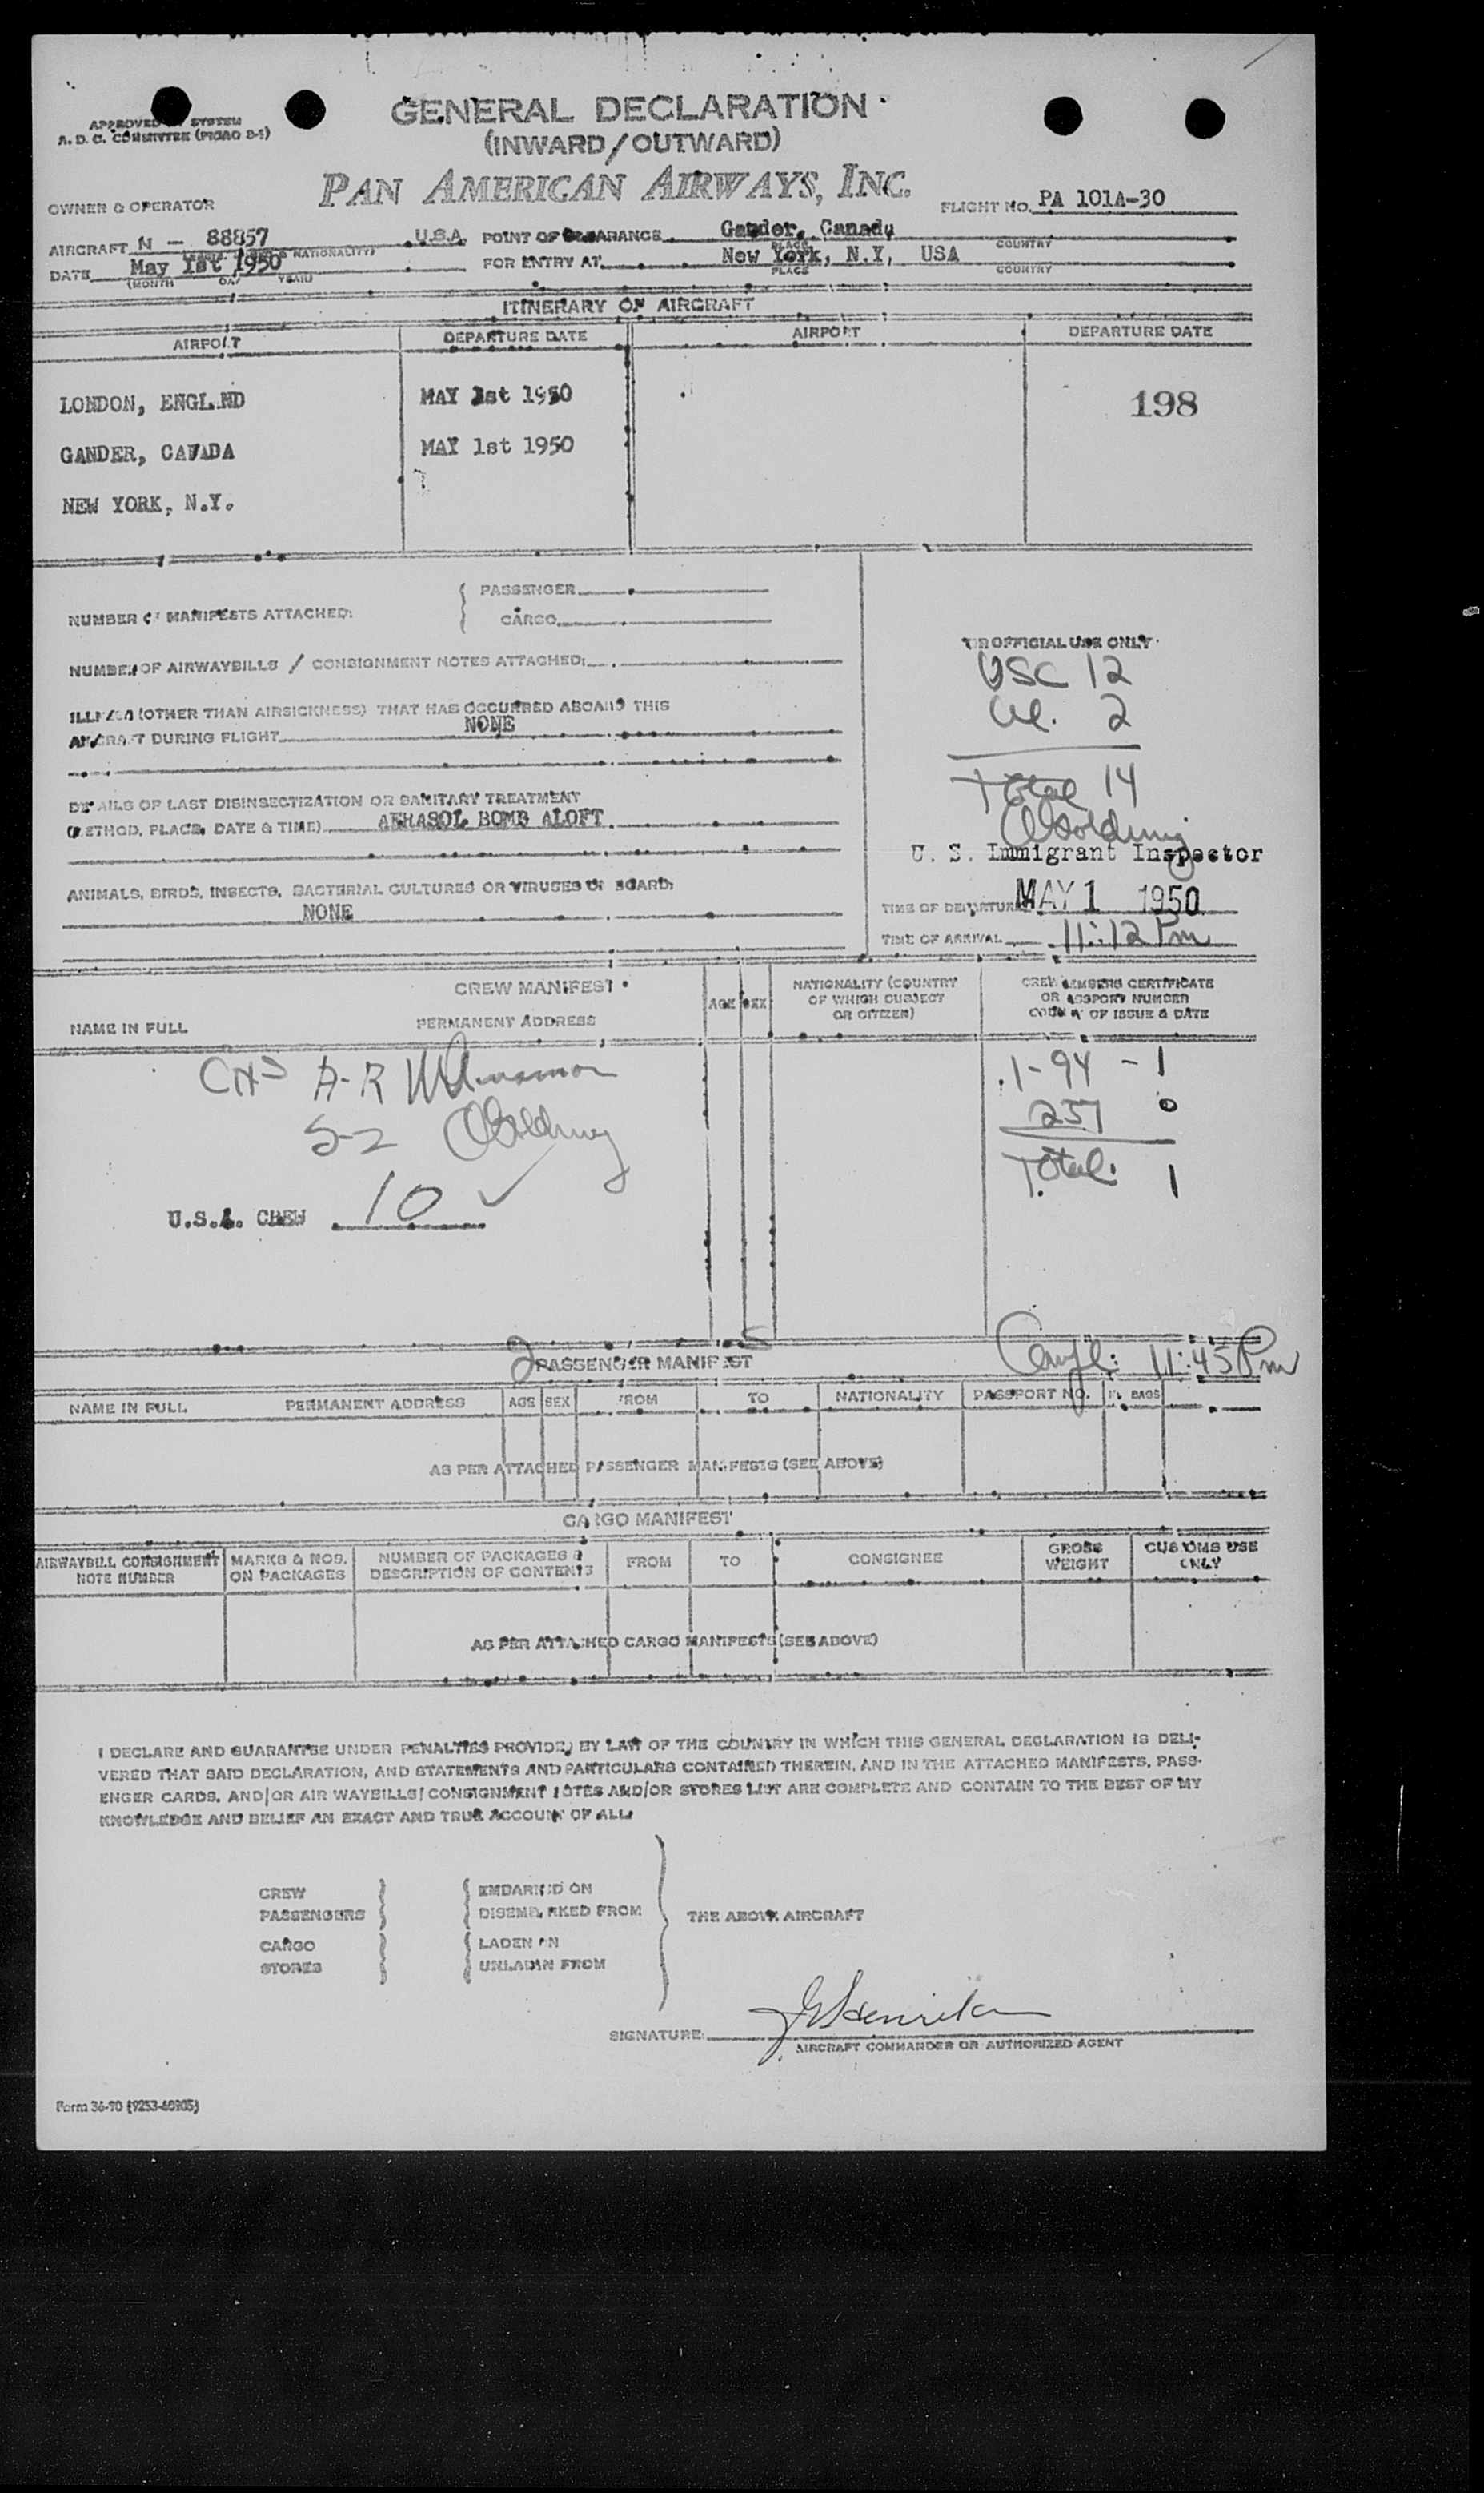 APPROVED BY SYSTEM
A. D. C. COMMITTEE (PICAO 2-1)
GENERAL DECLARATION
(INWARD/OUTWARD)
PAN AMERICAN AIRWAYS, INC.
OWNER & OPERATOR
FLIGHT NO. PA 101A-30
AIRCRAFT N - 88857 U.S.A. POINT OF CLEARANCE Gander, Canada
NATIONALITY) PLACE COUNTRY
DATE May 1st 1950 FOR ENTRY AT New York, N.Y, USA
(MONTH DAY YEAR) PLACE COUNTRY
ITINERARY OF AIRCRAFT
AIRPORT DEPARTURE DATE AIRPORT DEPARTURE DATE
LONDON, ENGLAND MAY 1st 1950 198
GANDER, CANADA MAY 1st 1950
NEW YORK, N.Y.
NUMBER OF MANIFESTS ATTACHED:
PASSENGER
CARGO
NUMBER OF AIRWAYBILLS / CONSIGNMENT NOTES ATTACHED:
ILLNESS (OTHER THAN AIRSICKNESS) THAT HAS OCCURRED ABOARD THIS
AIRCRAFT DURING FLIGHT NONE
DETAILS OF LAST DISINSECTIZATION OR SANITARY TREATMENT
(METHOD, PLACE, DATE & TIME) AERASOL BOMB ALOFT
ANIMALS, BIRDS, INSECTS, BACTERIAL CULTURES OR VIRUSES ON BOARD:
NONE
FOR OFFICIAL USE ONLY
USC 12
al. 2
Total 14
U. S. Immigrant Inspector
TIME OF DEPARTURE MAY 1 1950
TIME OF ARRIVAL 11:12 Pm
CREW MANIFEST
NAME IN FULL PERMANENT ADDRESS AGE SEX
NATIONALITY (COUNTRY
OF WHICH SUBJECT
OR CITIZEN)
CREW MEMBERS CERTIFICATE
OR PASSPORT NUMBER
COUNTRY OF ISSUE & DATE
1-94 - 1
257 0
Total: 1
S-2
U.S.A. CREW 10 ✓
PASSENGER MANIFEST
11:45 Pm
NAME IN FULL PERMANENT ADDRESS AGE SEX FROM TO NATIONALITY PASSPORT NO. BAGS
AS PER ATTACHED PASSENGER MANIFESTS (SEE ABOVE)
CARGO MANIFEST
AIRWAYBILL CONSIGNMENT
NOTE NUMBER
MARKS & NOS.
ON PACKAGES
NUMBER OF PACKAGES &
DESCRIPTION OF CONTENTS
FROM TO CONSIGNEE
GROSS
WEIGHT
CUSTOMS USE
ONLY
AS PER ATTACHED CARGO MANIFESTS (SEE ABOVE)
I DECLARE AND GUARANTEE UNDER PENALTIES PROVIDED BY LAW OF THE COUNTRY IN WHICH THIS GENERAL DECLARATION IS DELI-
VERED THAT SAID DECLARATION, AND STATEMENTS AND PARTICULARS CONTAINED THEREIN, AND IN THE ATTACHED MANIFESTS, PASS-
ENGER CARDS, AND/OR AIR WAYBILLS/CONSIGNMENT NOTES AND/OR STORES LIST ARE COMPLETE AND CONTAIN TO THE BEST OF MY
KNOWLEDGE AND BELIEF AN EXACT AND TRUE ACCOUNT OF ALL:
CREW EMBARKED ON
PASSENGERS DISEMBARKED FROM THE ABOVE AIRCRAFT
CARGO LADEN ON
STORES UNLADEN FROM
SIGNATURE:
AIRCRAFT COMMANDER OR AUTHORIZED AGENT
Form 36-90 (9253-60905)